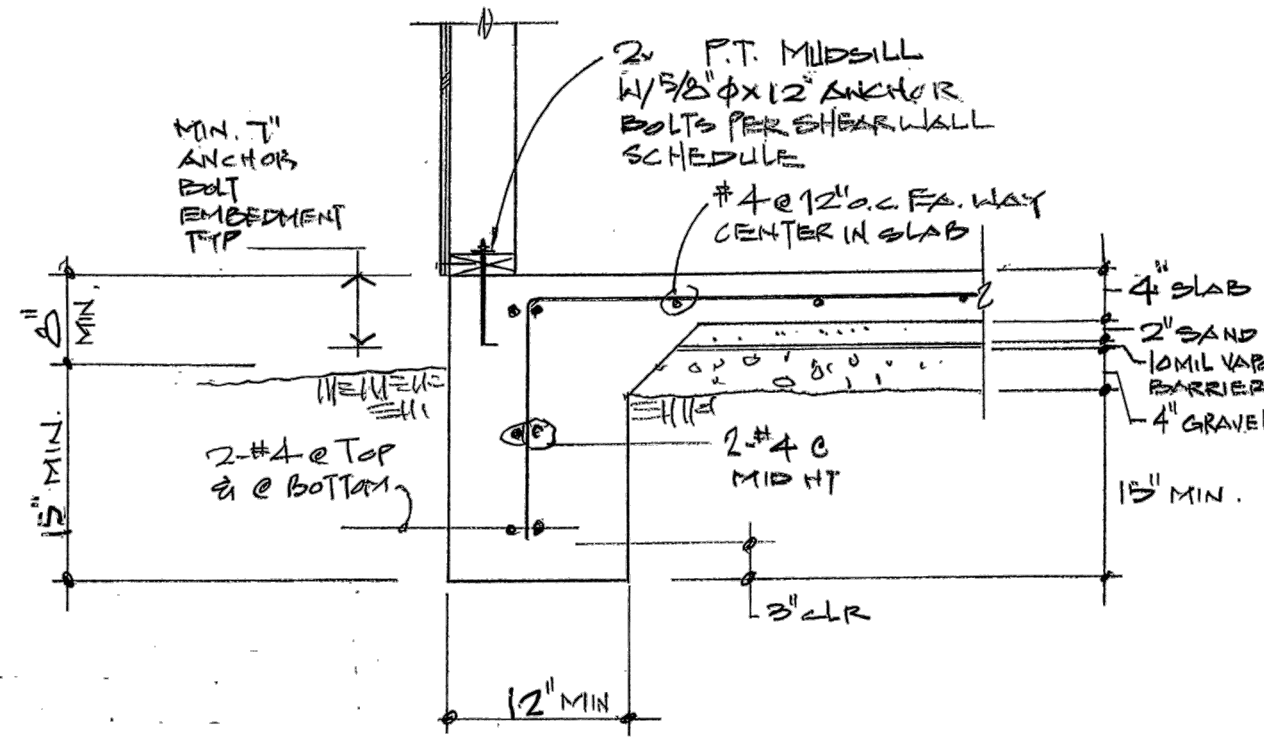 2x P.T. MUDSILL
W/ 5/8" Φ X 12" ANCHOR
BOLTS PER SHEAR WALL
SCHEDULE
MIN. 7"
ANCHOR
BOLT
EMBEDMENT
TYP
#4 @ 12" O.C. EA. WAY
CENTER IN SLAB
8"
MIN.
4" SLAB
2" SAND
10 MIL VAP
BARRIER
4" GRAVEL
15" MIN.
2-#4 @ TOP
& @ BOTTOM
2-#4 @
MID HT
15" MIN.
3" CLR
12" MIN